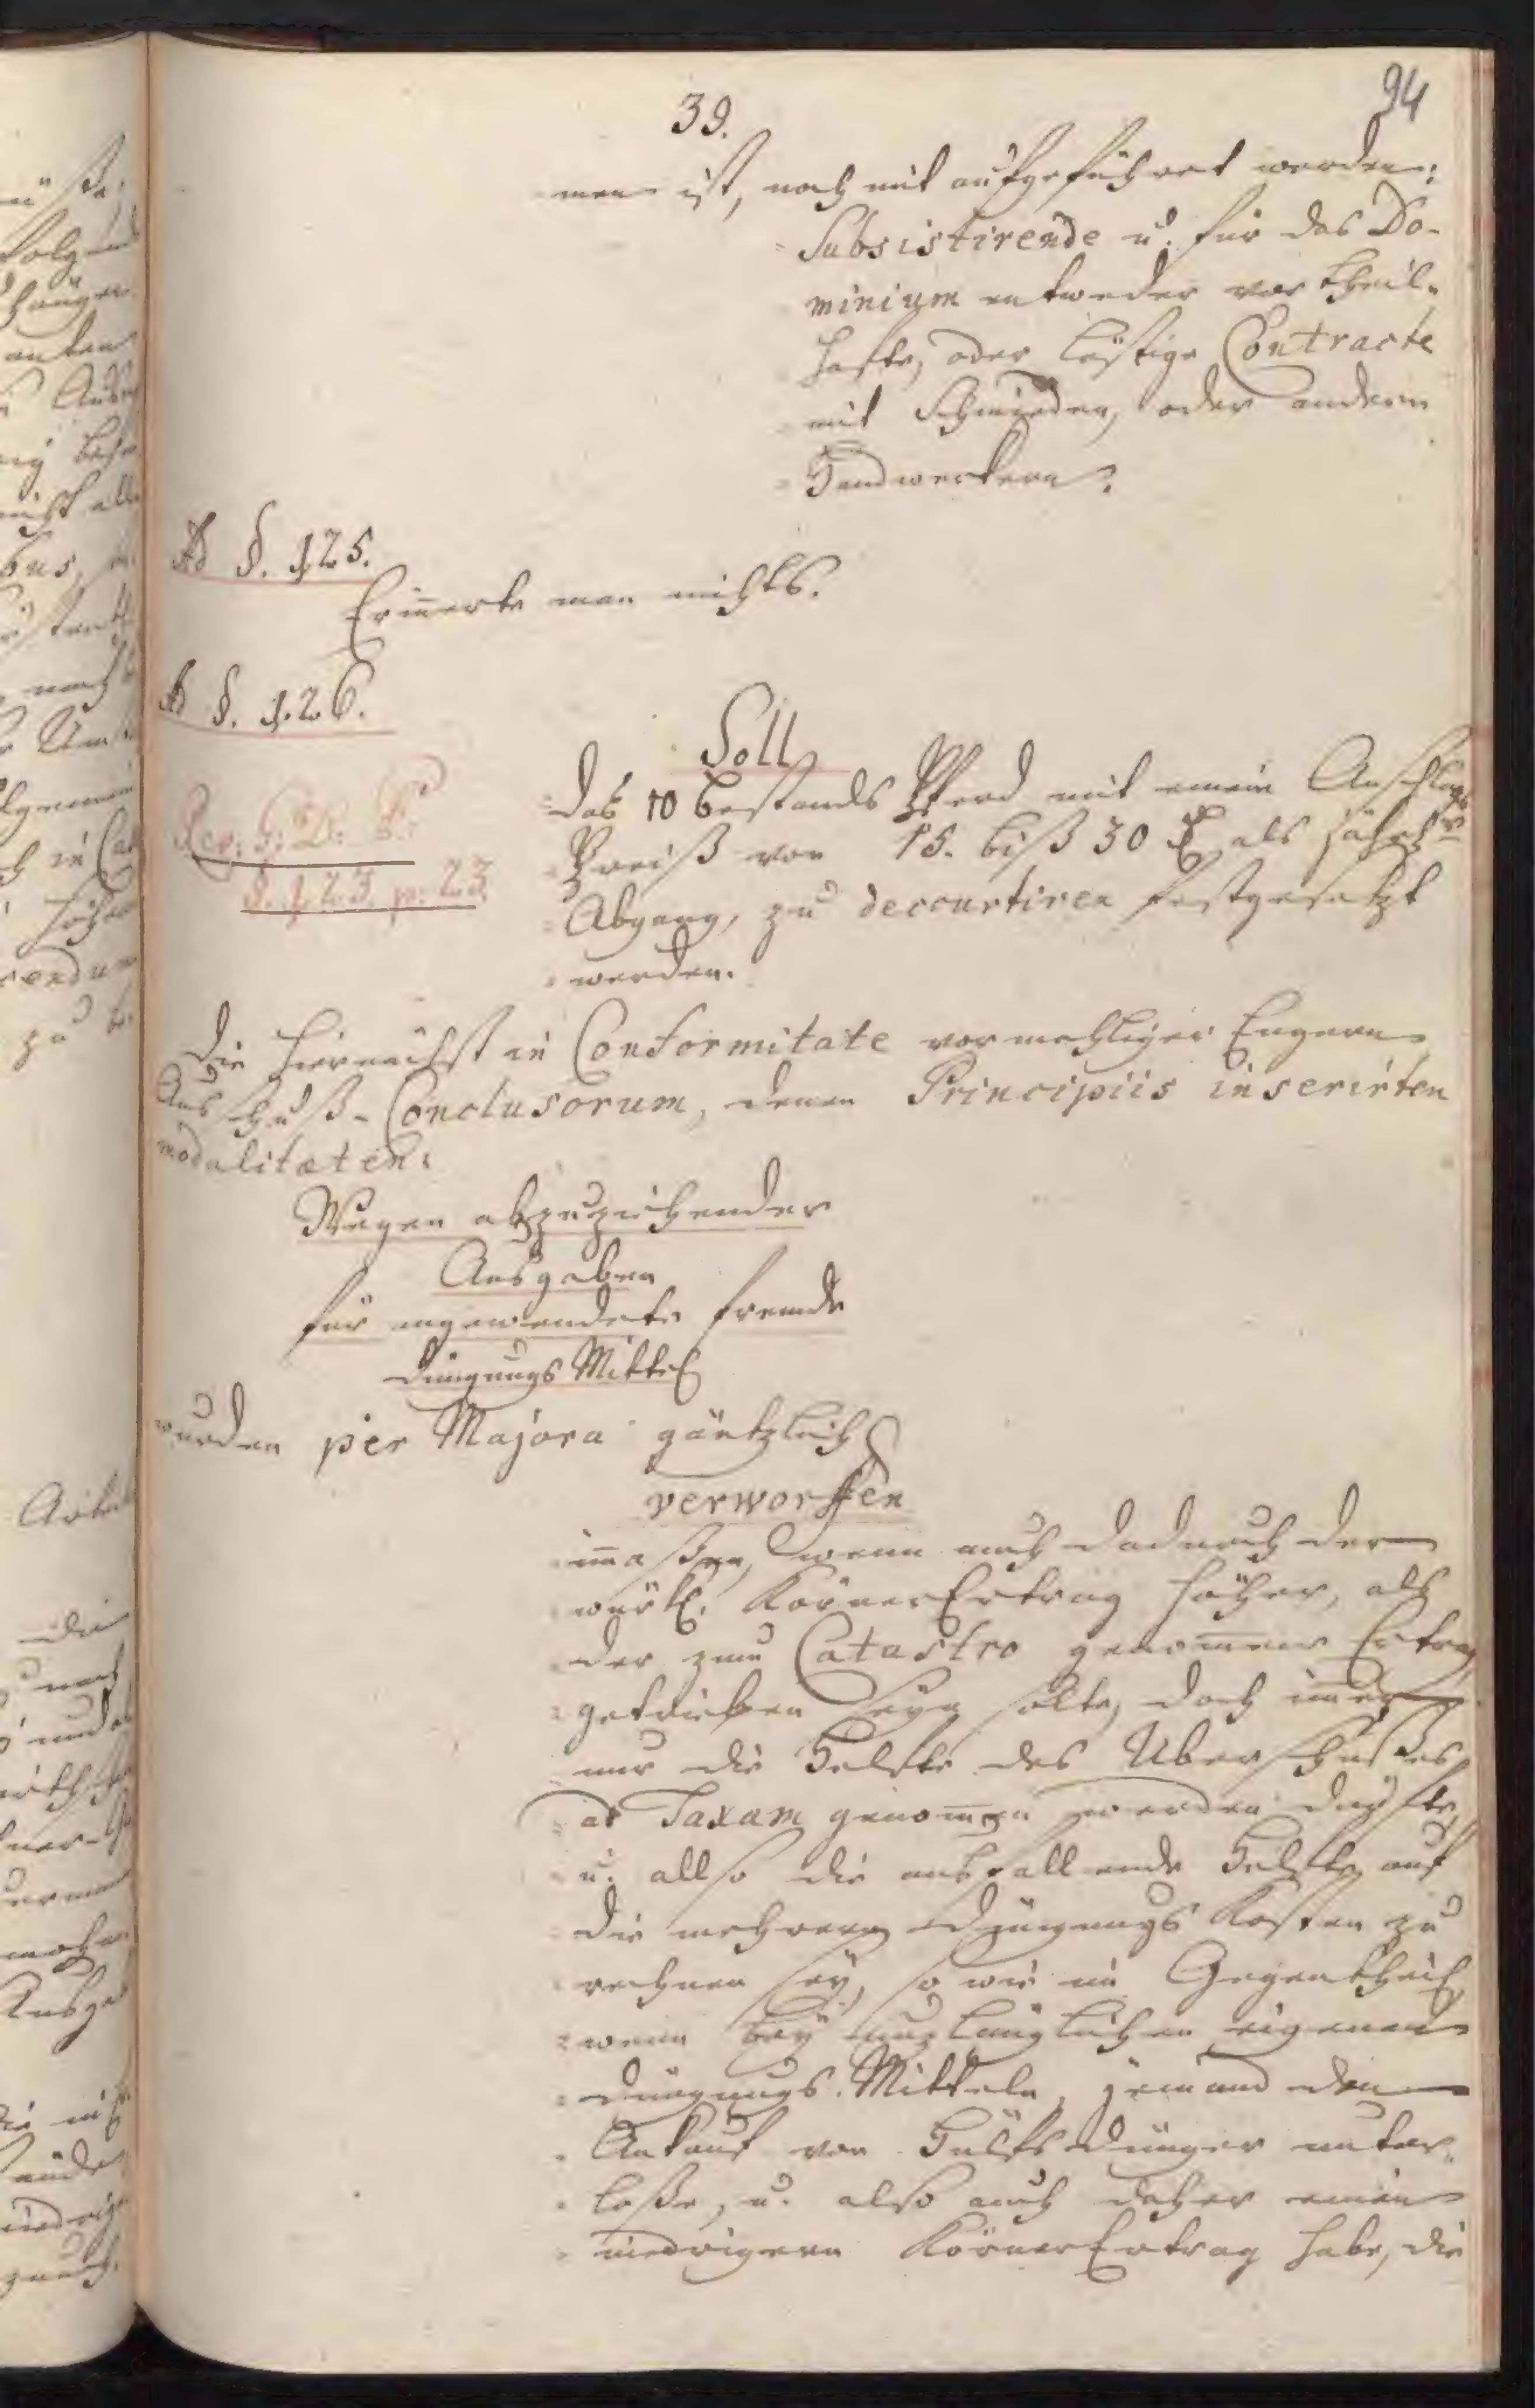 39.
94
men ist, noch mit aufgeführet werden:
Subsistirende u. für das Do-
minium entweder vortheil-
hafte, oder lästige Contracte
mit Schmieden, oder andern
Handwerkern.
Ad §. 125.
Erinnerte man nichts.
Ad §. 126.
Soll
das 10 bestands Pferd mit einem Anschlags
Preiß von 15. biß 30 als jährl.
Abgang, zu deccurtiren festgesetzt
werden.
§. 123. p. 23.
Die hiernächst in Conformitate vormahliger Engern
Ausschuß-Conclusorum, denen Principiis inserirten
modalitaeten:
Wegen abzuziehender
Ausgaben
für angewendete fremde
Düngungs Mittel
wurden per Majora gäntzlich
verworffen
immaßen, wenn auch dadurch der
würkl. Körner Ertrag höher, als
der zum Catastro genommene Ertrag
getrieben seyn solte, doch immer
nur die Helfte des Uberschußes
ad Taxam genommen werden dürfte,
u. allso die ausfallende Helfte auf
die mehrern Düngungs Kosten zu
rechnen sey, so wie im Gegentheil
wenn bey unzulänglichen eigenen
Düngungs-Mitteln, jemand den
Ankauf von Hülfs dünger unter-
laße, u. also auch daher einen
niedrigern Körner Ertrag habe, die